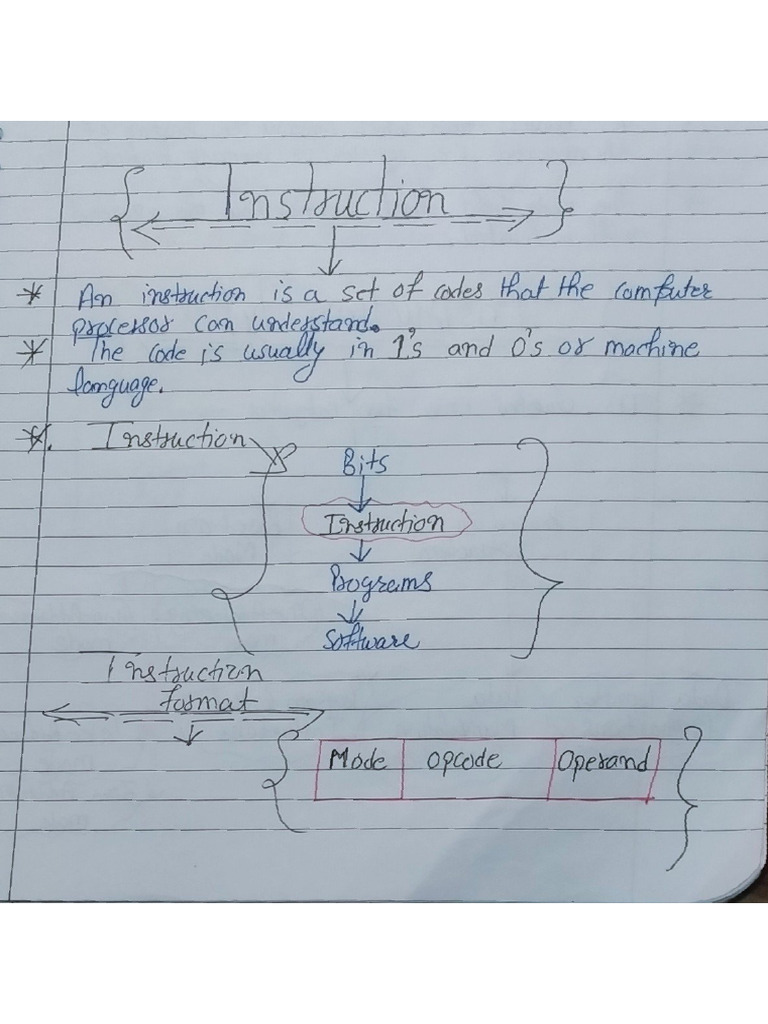 Instruction
* An instruction is a set of codes that the computer
processor can understand.
* The code is usually in 1's and 0's or machine
language.
*. Instruction
Bits
Instruction
Programs
Software
Instruction
format
Mode Opcode Operand